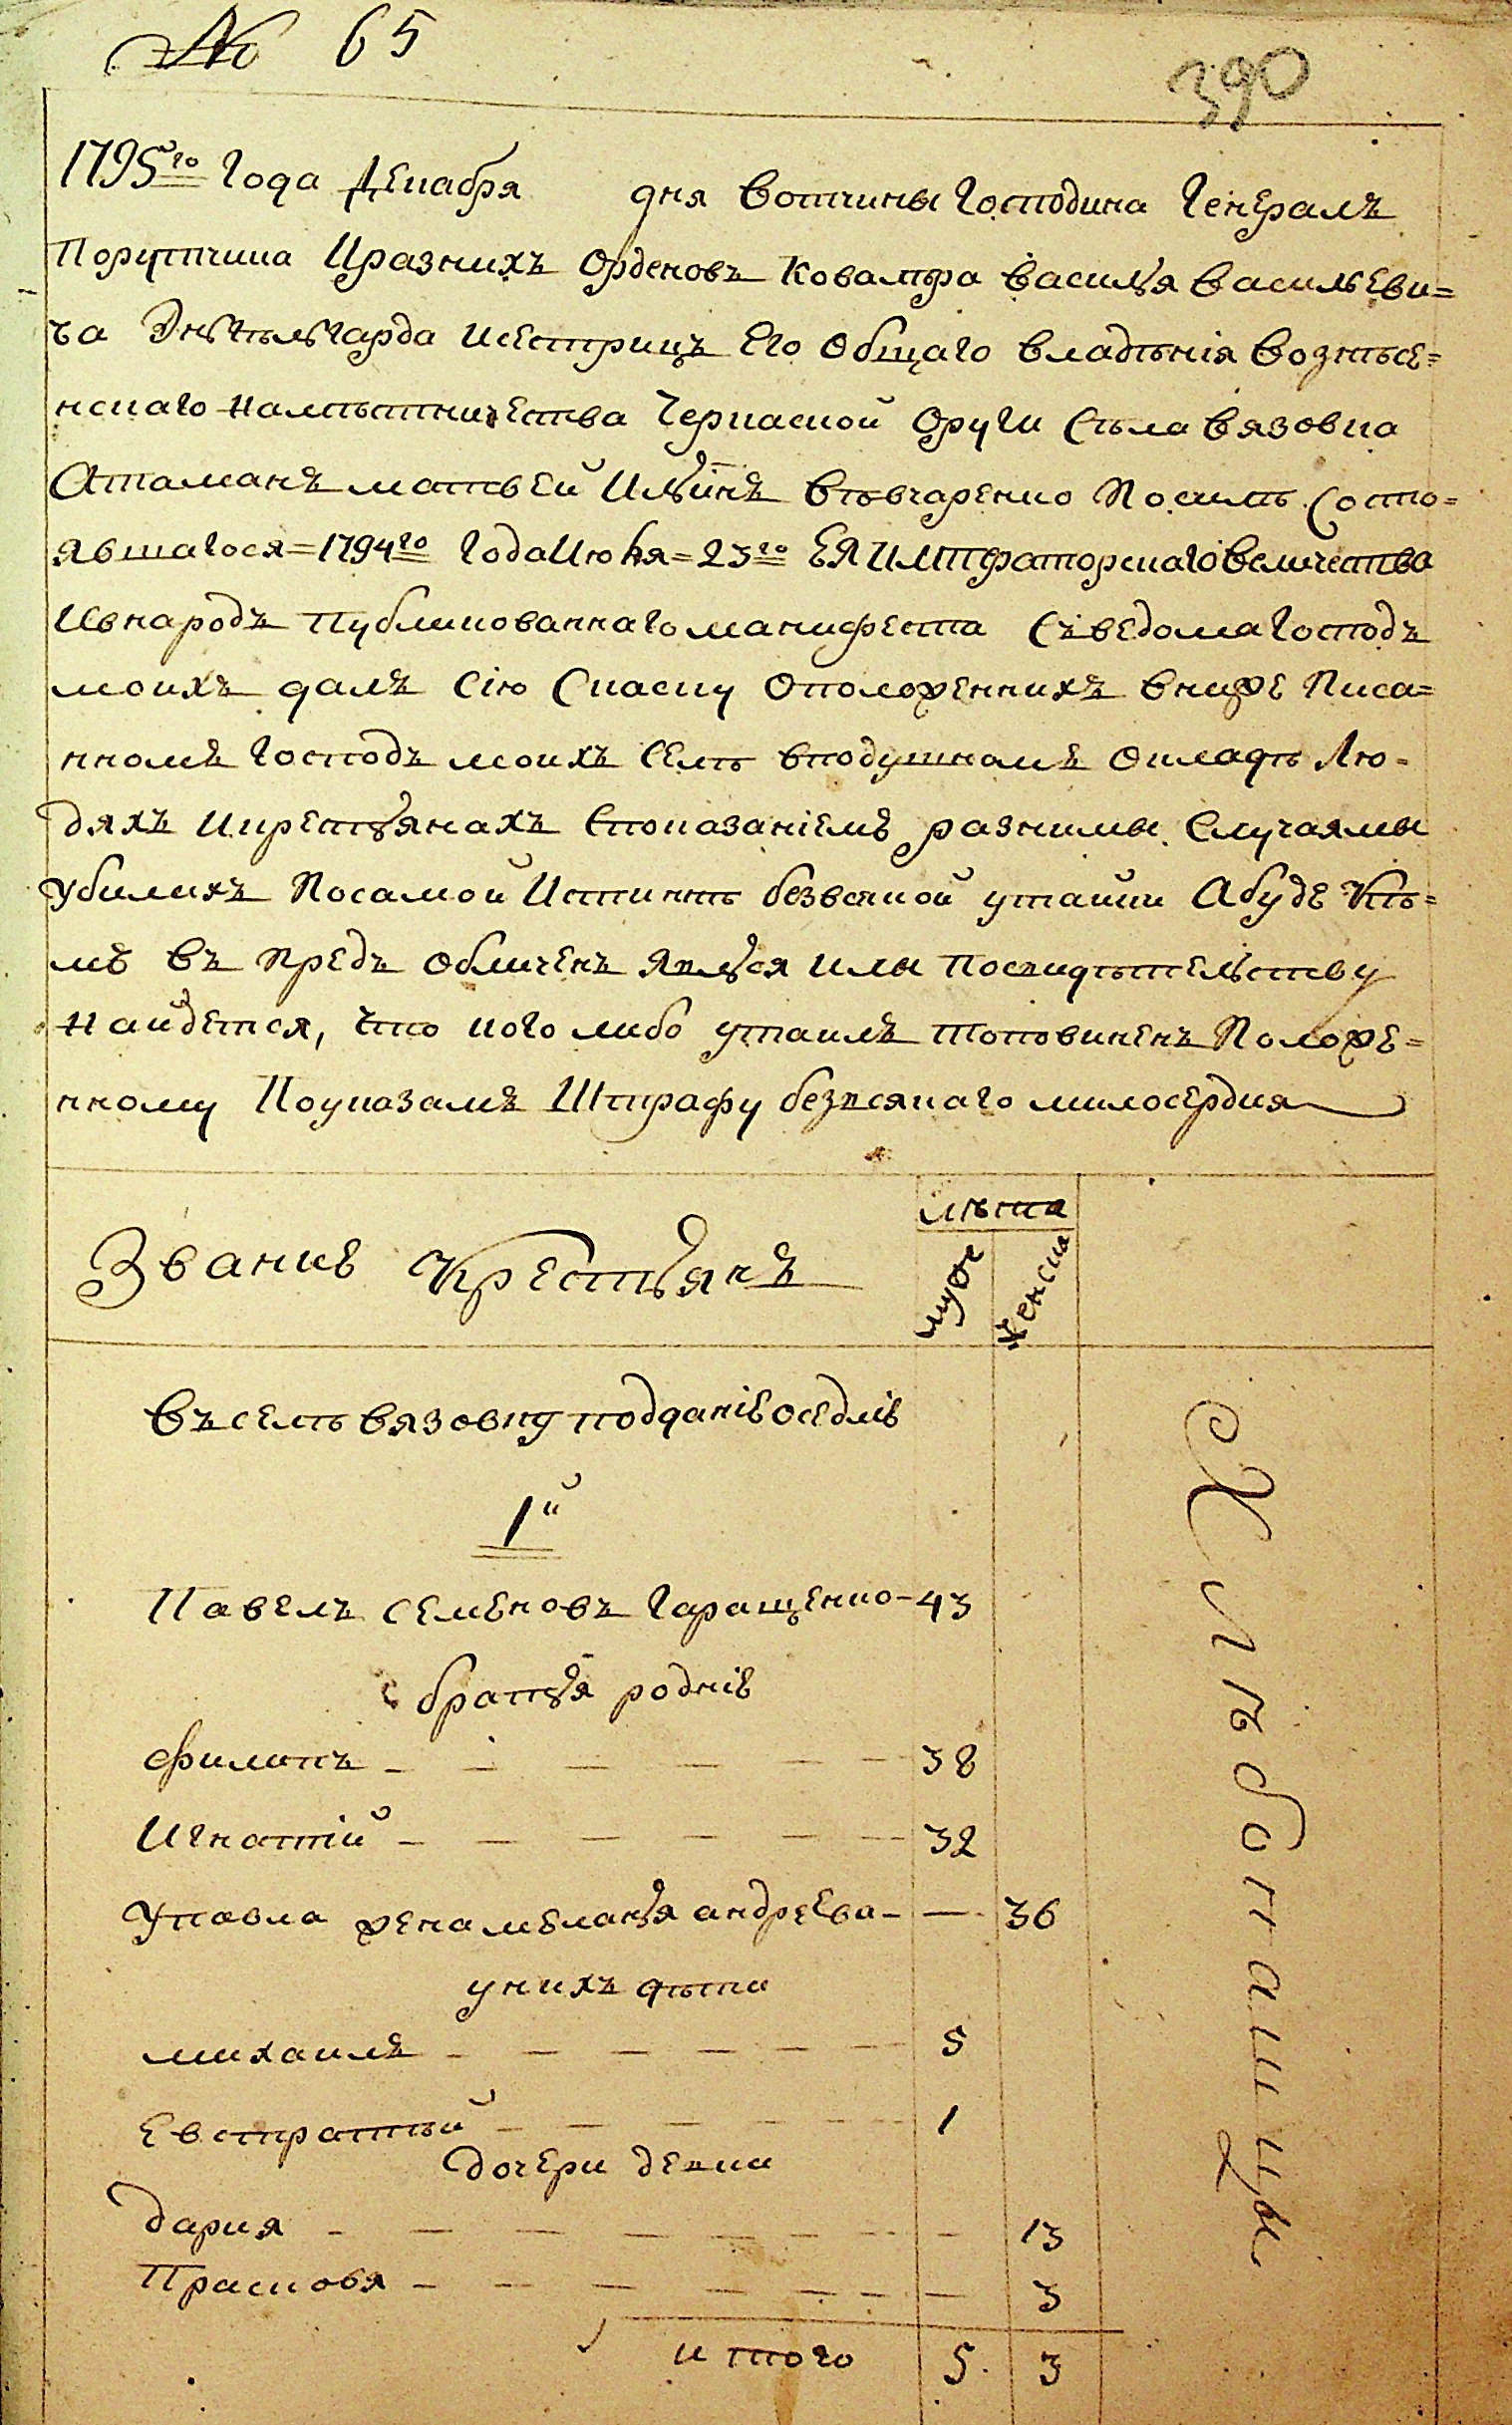 № 65
390
1795го года Декабря дня вотчины Господина Генералъ
Порутчика И разнихъ Орденовъ Ковалѣра Василья Васильеви=
ча Энгельгарда и сестрицъ Его Общаго владѣнія Вознѣсе=
нскаго Намѣстничества Черкаской Округи Сѣла Вязовка
Атаманъ Матвей Ильинъ Вовчаренко По силѣ Состо=
явшагося=1794го года Июня=23го ЕЯ Императорскаго Величества
И в народъ Публикованнаго манифеста Съ ведома Господъ
моихъ далъ Сію Скаску О положеннихъ в ниже Писа=
нномъ Господъ моихъ Селѣ в подушномъ Окладѣ Лю=
дяхъ и крестьянахъ С показаніемъ разними Случаями
убилихъ По самой Истиннѣ без всякой утайки А буде Кѣ=
мъ въ предъ обличенъ явлься или по свидѣтельству
Найдется, что кого либо утаилъ то повиненъ Положе=
нному По указамъ Штрафу без всякаго милосердия
лѣта
Звание Крестьянъ
муж
женска
Въ селѣ Вязовку подданіе оседліе
1й
Павелъ Семеновъ Гаращенко - 43
братья родніе
Филипъ 38
Игнатій 32
У Павла жена Меланья Андреева 36
у нихъ дѣти
Михаилъ 5
Евстратий 1
дочери девки
Дария 13
Прасковя 3
итого 5 3